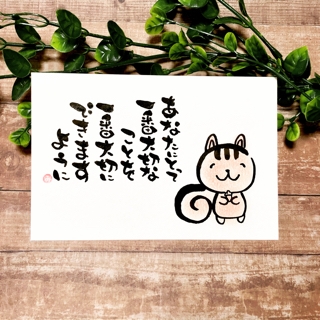 あなたにとって
一番大切な
ことを
一番大切に
できます
ように